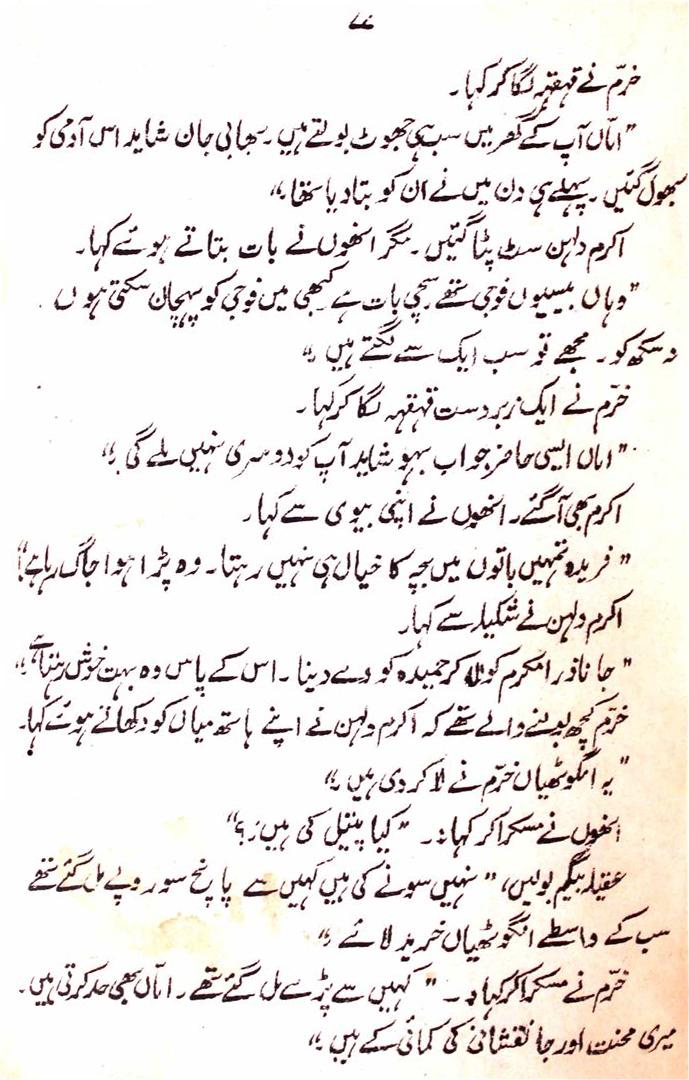 ۷۷
خرّم نے قہقہہ لگا کر کہا۔
”امّاں آپ کے گھر میں سب ہی جھوٹ بولتے ہیں۔ بھابی جان شاید اس آدمی کو
بھول گئیں۔ پہلے ہی دن میں نے ان کو بتا دیا تھا۔“
اکرم دلہن سٹ پٹا گئیں۔ مگر انھوں نے بات بتاتے ہوئے کہا۔
”وہاں بیسیوں فوجی تھے سچی بات ہے کبھی میں فوجی کو پہچان سکتی ہوں
نہ سکھ کو۔ مجھے تو سب ایک سے لگتے ہیں۔“
خرّم نے ایک زبردست قہقہہ لگا کر کہا۔
”اماں ایسی حاضر جواب بہو شاید آپ کو دوسری نہیں ملے گی۔“
اکرم بھی آ گئے۔ انھوں نے اپنی بیوی سے کہا۔
”فریدہ تمہیں باتوں میں بچہ کا خیال ہی نہیں رہتا۔ وہ پڑا ہوا جاگ رہا ہے۔“
اکرم دلہن نے شکیلہ سے کہا۔
”جانا ذرا مکرم کو لا کر حمیدہ کو دے دینا۔ اس کے پاس وہ بہت خوش رہتا ہے۔“
خرّم کچھ بولنے والے تھے کہ اکرم دلہن نے اپنے ہاتھ میاں کو دکھاتے ہوئے کہا۔
”یہ انگوٹھیاں خرّم نے لا کر دی ہیں۔“
انھوں نے مسکرا کر کہا:۔ ”کیا پیتل کی ہیں؟“
عقیلہ بیگم بولیں، ”نہیں سونے کی ہیں کہیں سے پانچ سو روپے مل گئے تھے
سب کے واسطے انگوٹھیاں خرید لائے۔“
خرّم نے مسکرا کر کہا:۔ ”کہیں سے پڑے مل گئے تھے۔ امّاں بھی حد کرتی ہیں۔
میری محنت اور جانفشانی کی کمائی کے ہیں۔“